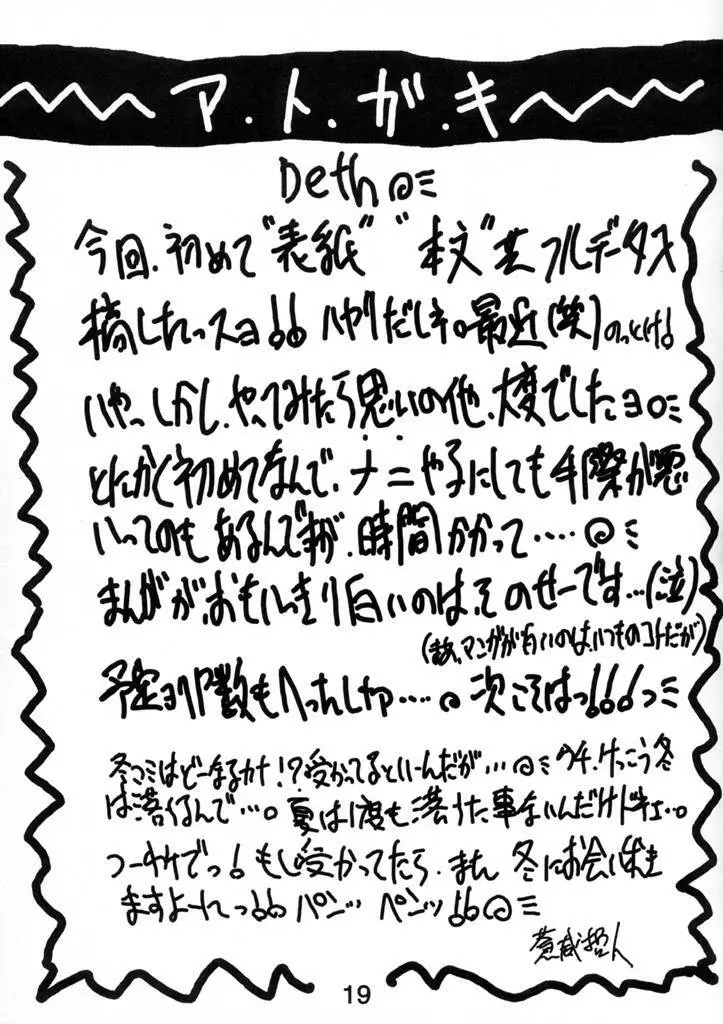 ア.ト.ガ.キ
Deth
今回、初めて"表紙""本文"共フルデータ入
稿したっスョ!! ハヤリだしネ。最近(笑)のっとけ!
いやっ、しかし、やってみたら思いの他、大変でしたョ。
とにかく初めてなんで、ナニやるにしても手際が悪
いってのもあるんですが、時間かかって‥‥
まんがが、おもいっきり白いのは、そのせーです…(泣)
(まぁ、マンガが白いのは、いつものコトだが)
予定ョリP数もへっちゃしゃ‥‥。次こそはっ!!!っ
冬コミはどーなるカナ!?受かってるといーんだが… ウチ、けっこう冬
は落ちるんで…。夏は1度も落ちた事ないんだけドネェ…。
つーわけでっ!もし受かってたら、また 冬にお会いしき
ますよーにっ!! パンッ パンッ!!
蒼威哲人
19